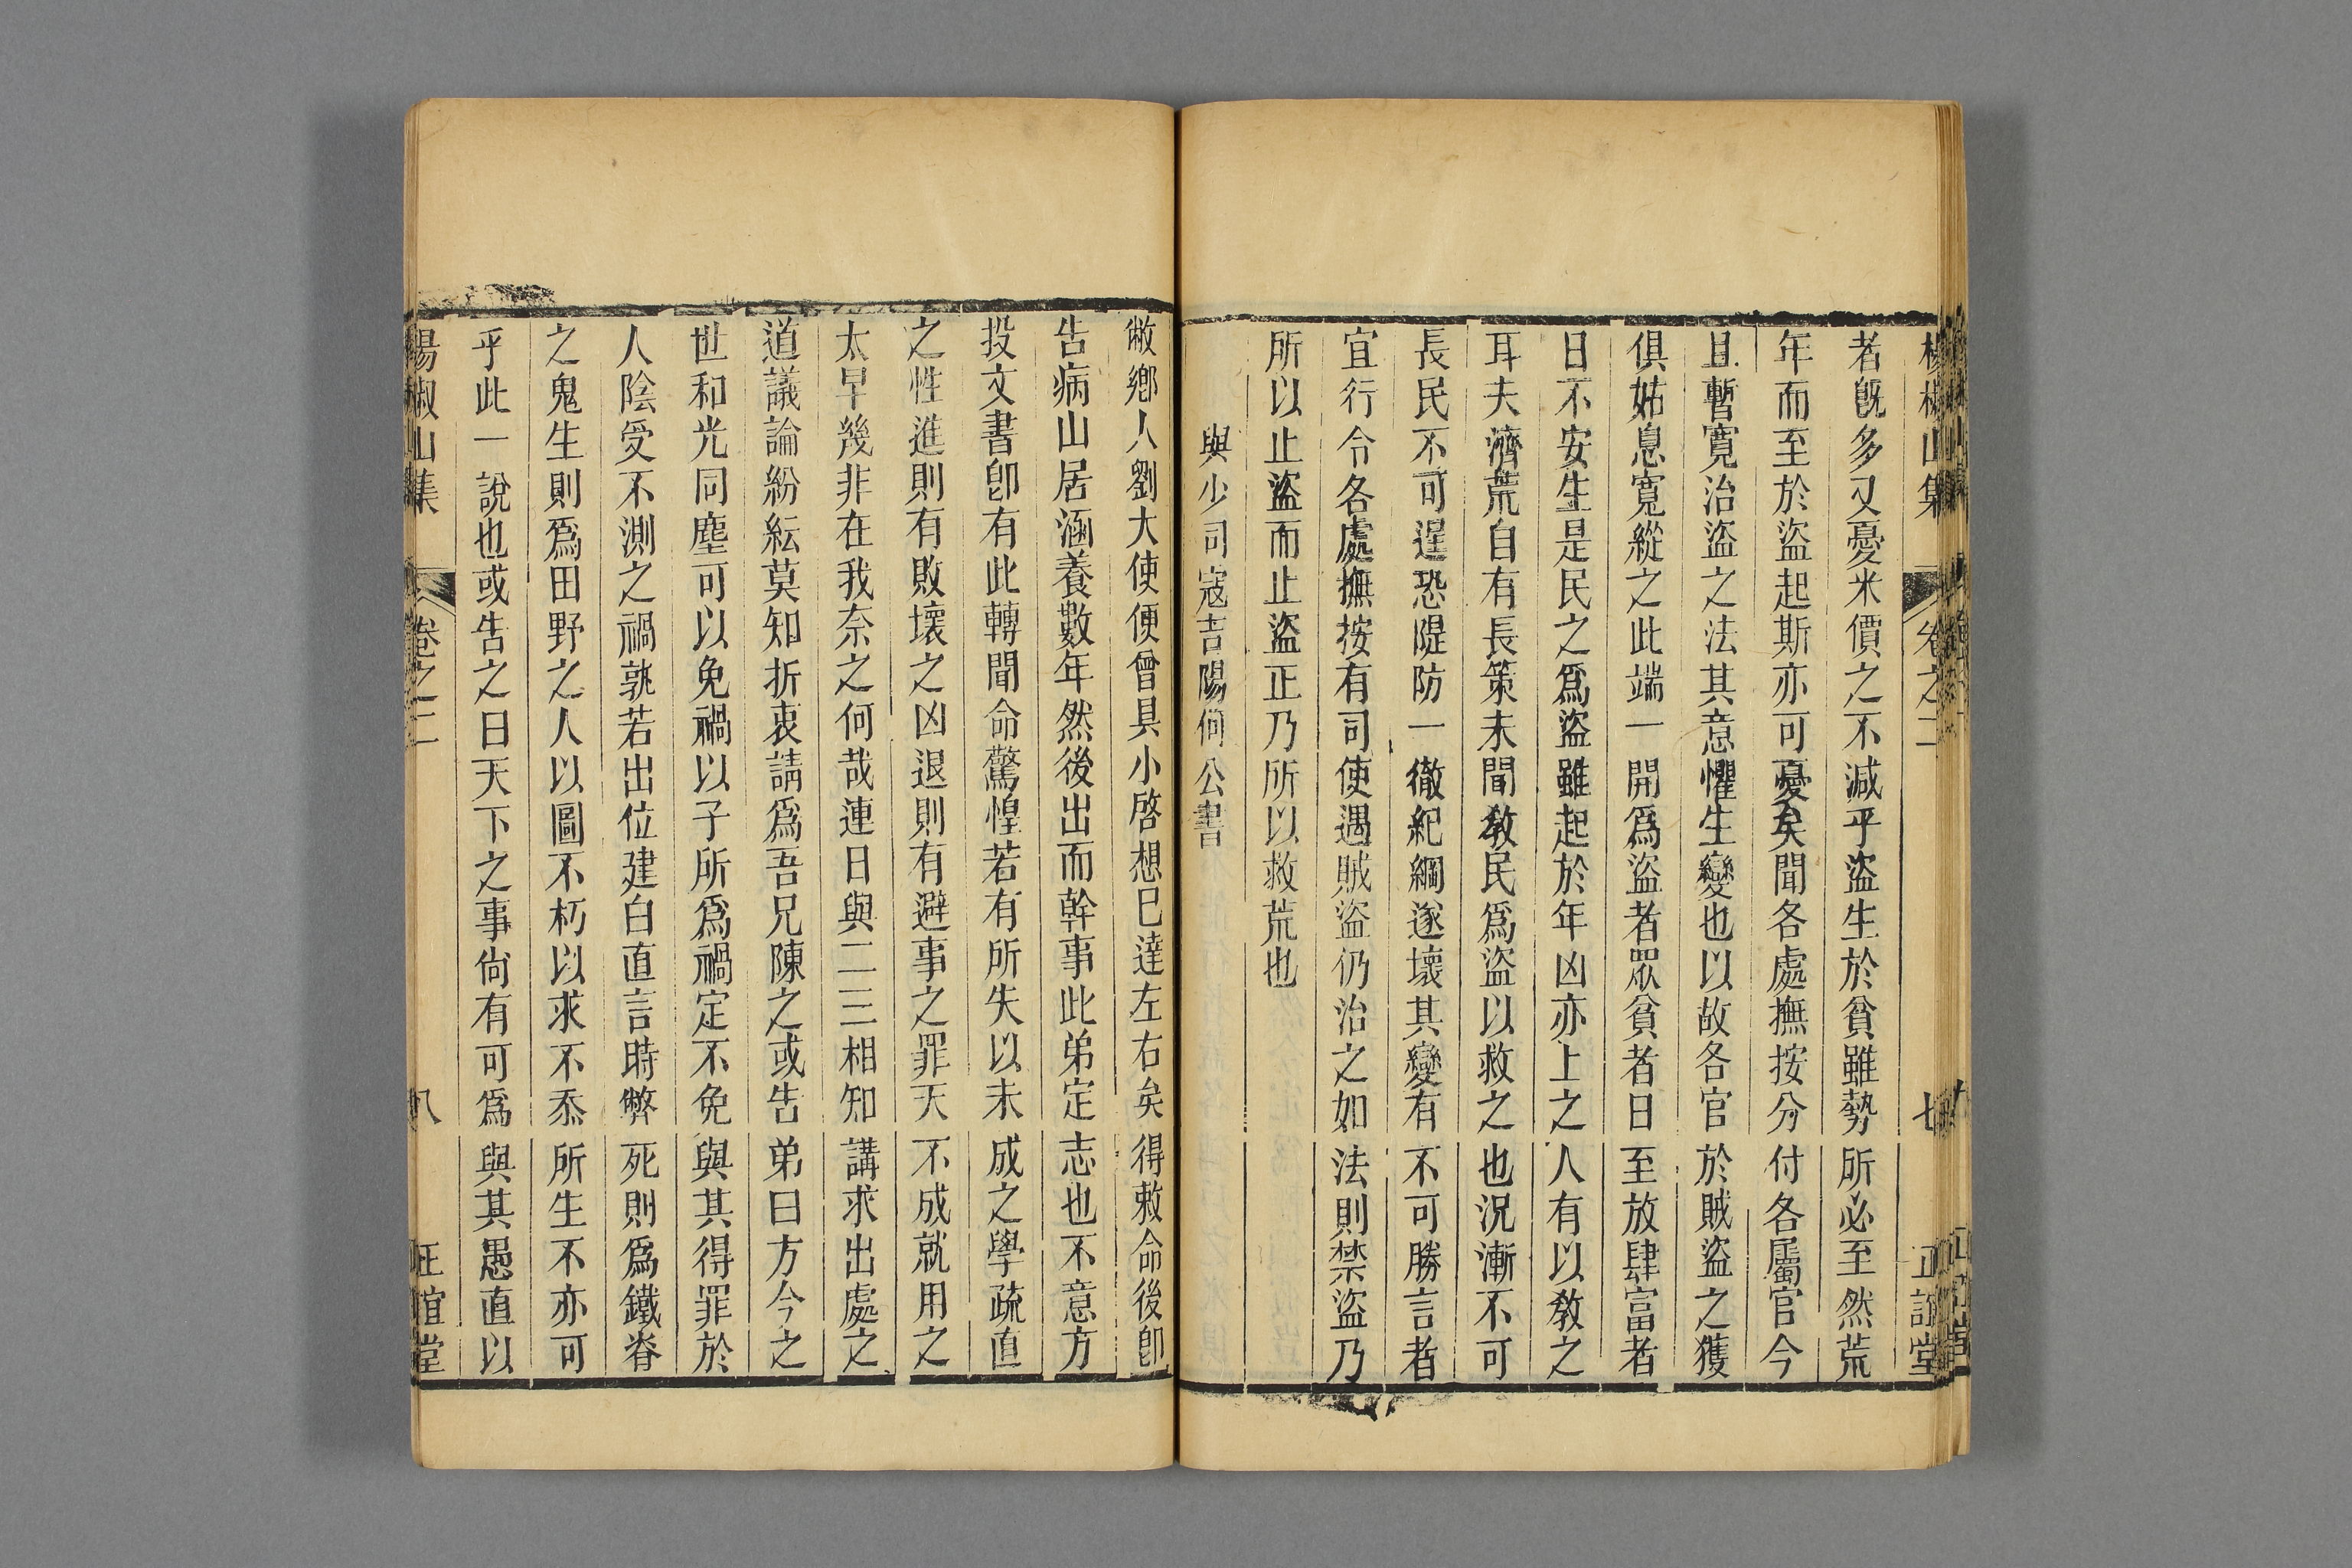 楊椒山集 卷之二 七 正誼堂
者旣多又憂米價之不減乎盜生於貧雖勢所必至然荒
年而至於盜起斯亦可憂矣聞各處撫按分付各屬官今
且暫寬治盜之法其意懼生變也以故各官於賊盜之獲
俱姑息寬縱之此端一開爲盜者眾貧者日至放肆富者
日不安生是民之爲盜雖起於年凶亦上之人有以敎之
耳夫濟荒自有長策未聞敎民爲盜以救之也況漸不可
長民不可逞恐隄防一徹紀綱遂壞其變有不可勝言者
宜行令各處撫按有司使遇賊盜仍治之如法則禁盜乃
所以止盜而止盜正乃所以救荒也
與少司寇吉陽何公書
敝鄉人劉大使便曾具小啓想已達左右矣得敕命後卽
告病山居涵養數年然後出而幹事此弟定志也不意方
投文書卽有此轉聞命驚惶若有所失以未成之學疏直
之性進則有敗壞之凶退則有避事之罪天不成就用之
太早幾非在我奈之何哉連日與二三相知講求出處之
道議論紛紜莫知折衷請爲吾兄陳之或告弟曰方今之
世和光同塵可以免禍以子所爲禍定不免與其得罪於
人陰受不測之禍孰若出位建白直言時弊死則爲鐵脊
之鬼生則爲田野之人以圖不朽以求不忝所生不亦可
乎此一說也或告之曰天下之事尙有可爲與其愚直以
楊椒山集 卷之二 八 正誼堂